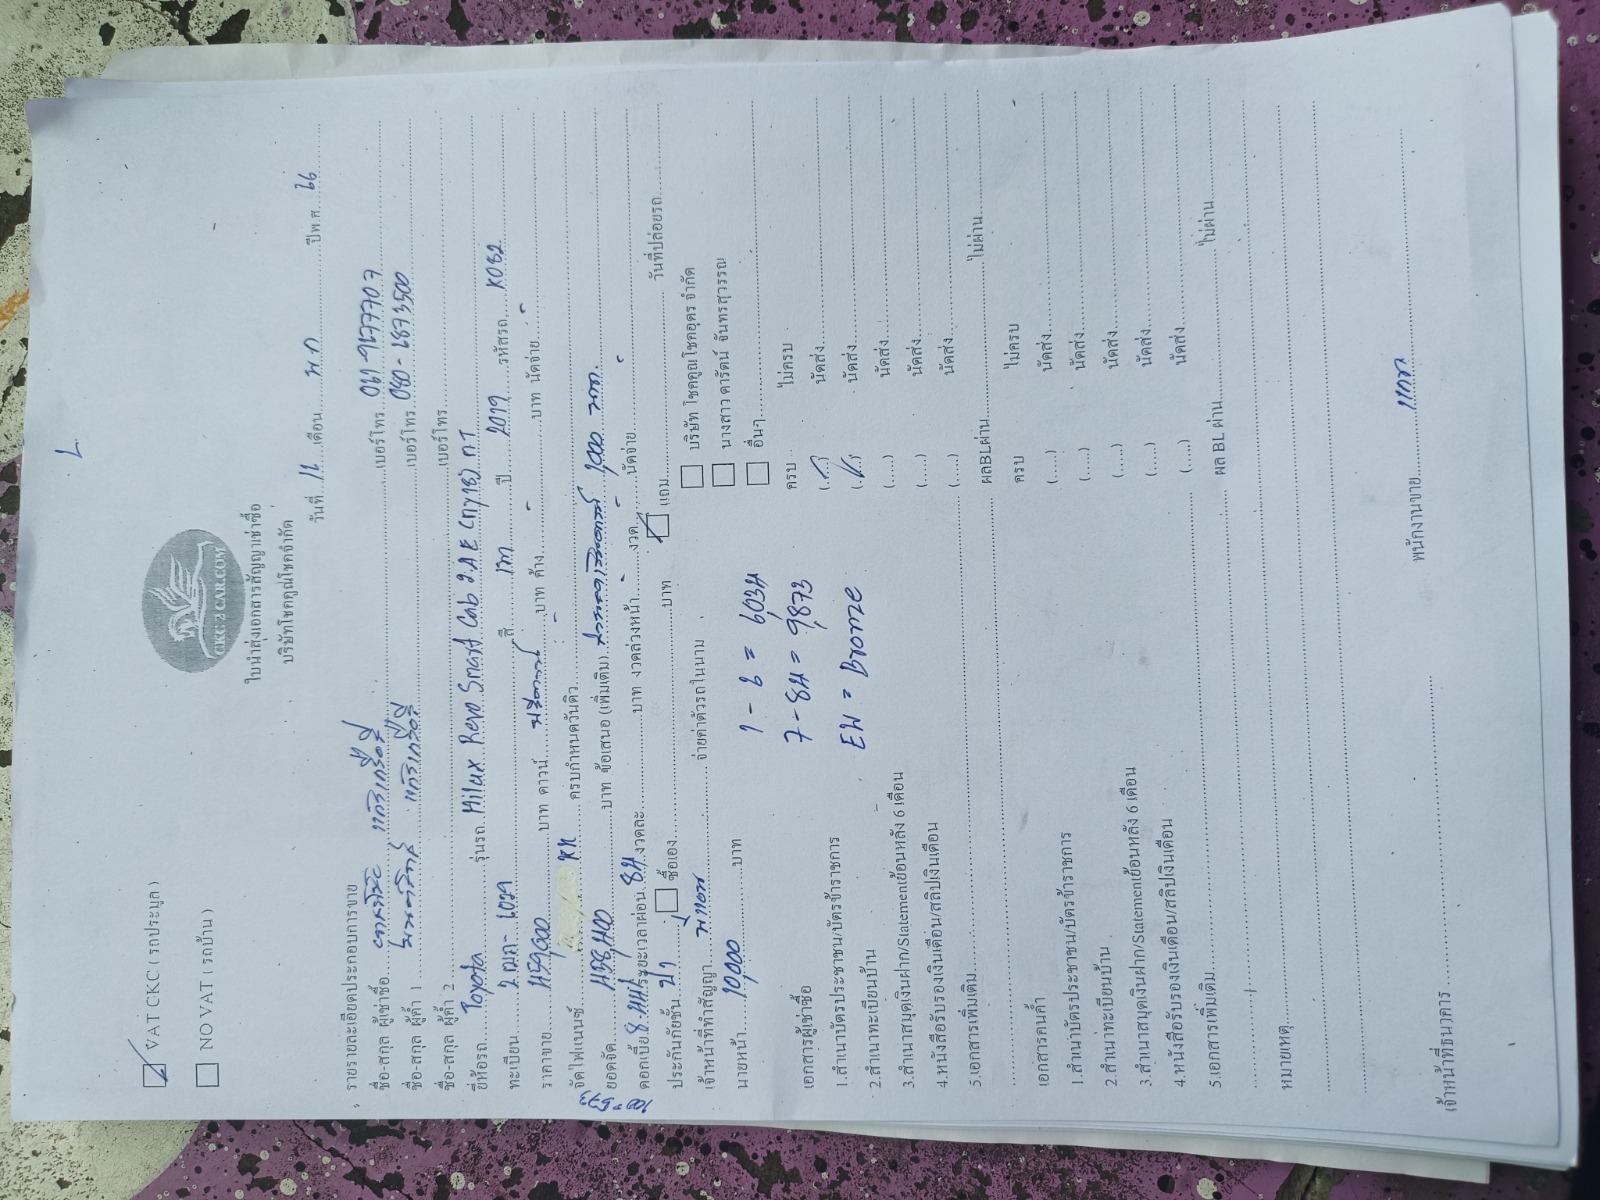 VAT CKC ( รถประมูล )
NO VAT ( รถบ้าน )
CKC 2 CAR.COM
ใบนำส่งเอกสารสัญญาเช่าซื้อ
บริษัทโชคคูณโชคจำกัด
วันที่ 12 เดือน พ.ค ปีพ.ศ. 66
รายรายละเอียดประกอบการขาย
ชื่อ-สกุล ผู้เช่าซื้อ เบอร์โทร
ชื่อ-สกุล ผู้ค้ำ 1 เบอร์โทร 080-2873500
ชื่อ-สกุล ผู้ค้ำ 2 เบอร์โทร
ยี่ห้อรถ Toyota รุ่นรถ Hilux Revo Smart Cab
ทะเบียน สี เทา ปี 2019 รหัสรถ K082
ราคาขาย 459,000 บาท ดาวน์ บาท ค้าง - บาท นัดจ่าย -
จัดไฟแนนซ์ KK ครบกำหนดวันดิว
ยอดจัด บาท ข้อเสนอ (เพิ่มเติม) 1,000 บาท
ดอกเบี้ย ระยะเวลาผ่อน 84 งวดละ บาท งวดล่วงหน้า - งวด - นัดจ่าย -
ประกันภัยชั้น ซื้อเอง บาท แถม วันที่ปล่อยรถ
เจ้าหน้าที่ทำสัญญา จ่ายค่าตัวรถในนาม
บริษัท โชคคูณโชคอุดร จำกัด
นางสาว ดารัตน์ จันทรสุวรรณ
อื่นๆ
นายหน้า 10,000 บาท
1 - 6 = 6,034
7 - 84 = 9,873
EW = Bronze
เอกสารผู้เช่าซื้อ ครบ ไม่ครบ
1.สำเนาบัตรประชาชน/บัตรข้าราชการ นัดส่ง
2.สำเนาทะเบียนบ้าน นัดส่ง
3.สำเนาสมุดเงินฝาก/Statementย้อนหลัง 6 เดือน (.....) นัดส่ง
4.หนังสือรับรองเงินเดือน/สลิปเงินเดือน (.....) นัดส่ง
5.เอกสารเพิ่มเติม (.....) นัดส่ง
ผลBLผ่าน ไม่ผ่าน
เอกสารคนค้ำ ครบ ไม่ครบ
1.สำเนาบัตรประชาชน/บัตรข้าราชการ (.....) นัดส่ง
2.สำเนาทะเบียนบ้าน (.....) นัดส่ง
3.สำเนาสมุดเงินฝาก/Statementย้อนหลัง 6 เดือน (.....) นัดส่ง
4.หนังสือรับรองเงินเดือน/สลิปเงินเดือน (.....) นัดส่ง
5.เอกสารเพิ่มเติม (.....) นัดส่ง
ผล BL ผ่าน ไม่ผ่าน
หมายเหตุ
เจ้าหน้าที่ธนาคาร พนักงานขาย